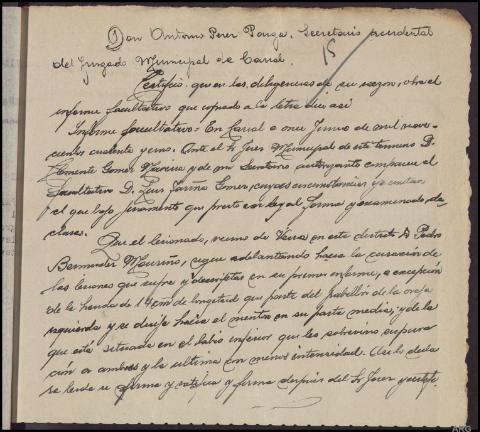 Don Antonio Perez Ponga, Secretario accidental
del Juzgado Municipal de Carral. 15
Certifico: que en las diligencias de su razon, obra el
informe facultativo que copiado a la letra dice asi
Informe facultativo = En Carral a once Junio de mil nove-
cientos cuarenta y uno. Ante el Sr Juez Municipal de este termino D.
Clemente Gomez y de mi Secretario autorizante comparece el
facultativo D. Luis Fariña cuyas circunstancias ya constan
y el que bajo juramento que presto con legal forma y examinado de-
clara:
Que el lesionado, vecino de Veira en este distrito D Pedro
Bermudez Mouriño, sigue adelantando hacia la curacion de
las lesiones que sufre y descriptas en su primer informe, a excepción
de la herida de 14 cm de longitud que parte del pabellón de la oreja
izquierda y se dirije hacia el menton en su parte media, y de la
que está situada en el labio inferior que les sobrevino supura
cion a ambas y la ultima con menos intensidad. Asi lo dice
se lee se afirma y ratifica y firma despues del Sr Juez y certifico.
AKG